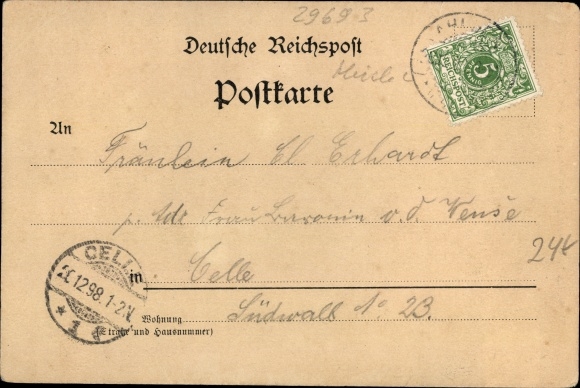 29693
Deutsche Reichspost
REICHSPOST
5
Postkarte
An
Fräulein El Erhardt
p. Adr Frau Baronin v. d Wense
in Celle
24t
Südwall No 23.
Wohnung
(Straße und Hausnummer)
CELLE
12.98. 1-2N
* 1